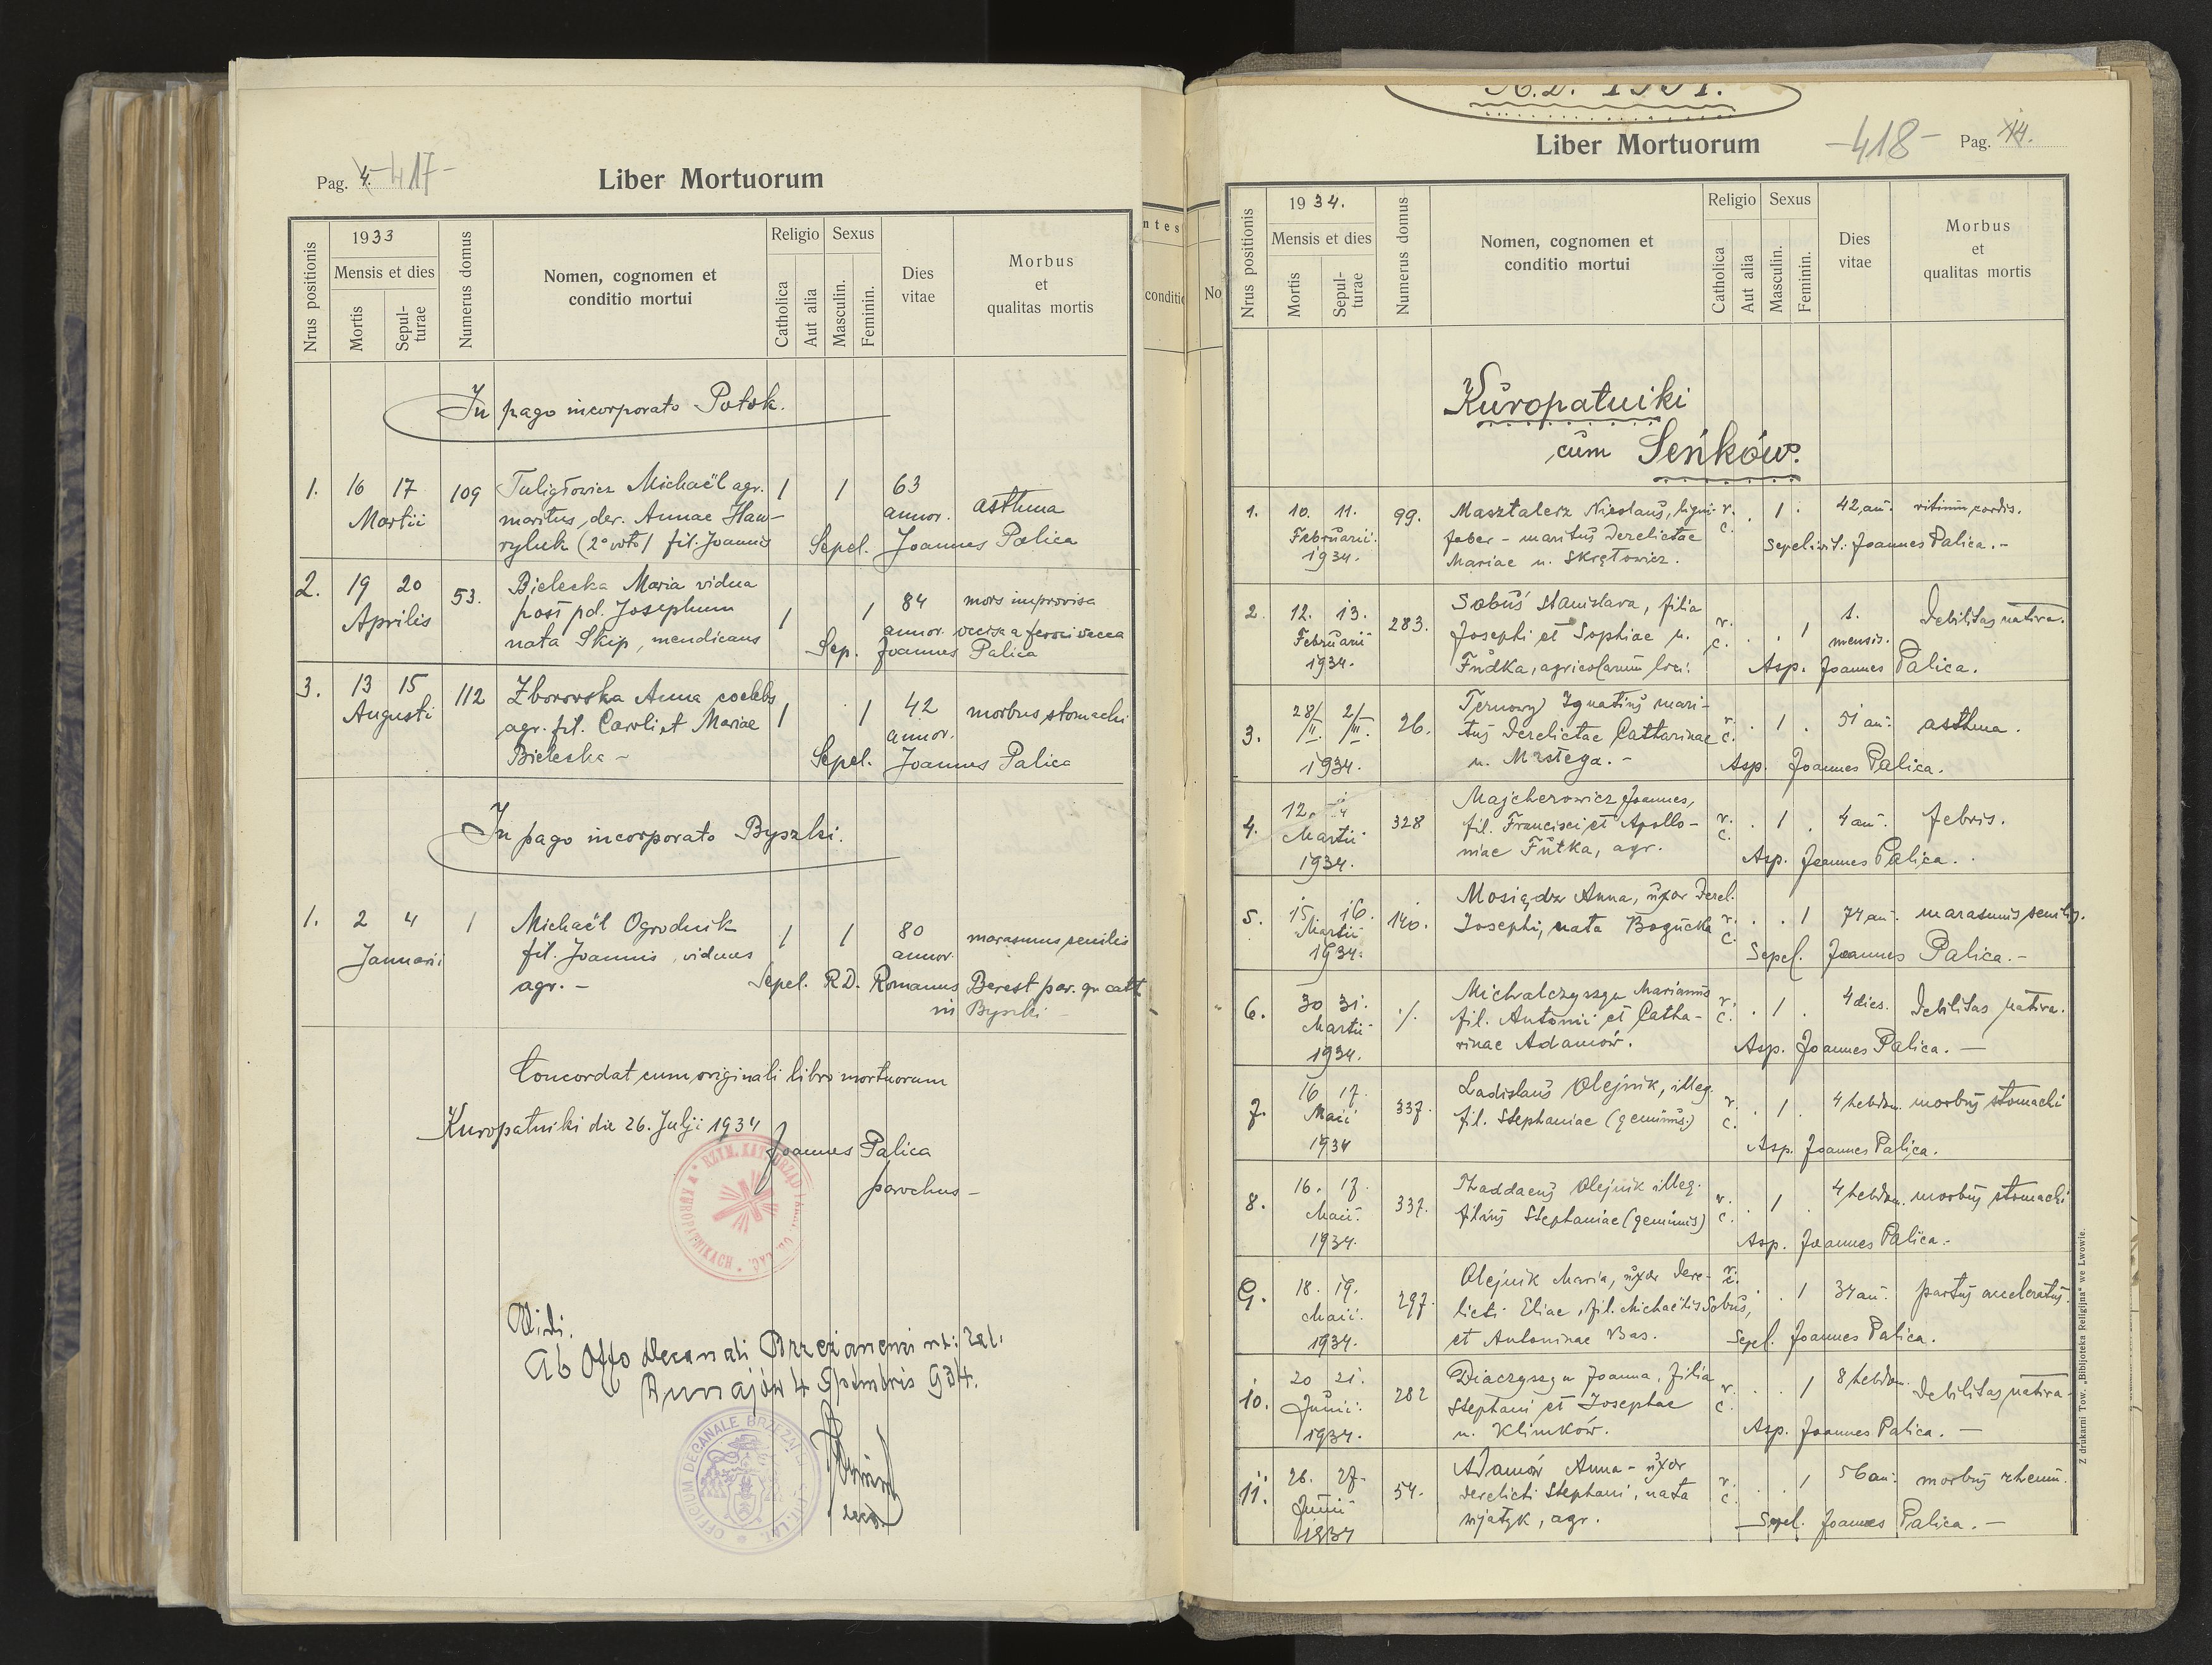 Pag. 4. -417-
Liber Mortuorum
Nrus positionis
1933
Mensis et dies
Mortis
Sepul-
turae
Numerus domus
Nomen, cognomen et
conditio mortui
Religio
Catholica
Aut alia
Sexus
Masculin.
Feminin.
Dies
vitae
Morbus
et
qualitas mortis
In pago incorporato Potok.
1. 16 17 109 Tuligłowicz Michaël agr. 1 1 63
Martii maritus, der. Annae Haw- annor. asthma
ryluk (2° voto) fil. Joannis Sepel. Joannes Palica
2. 19 20 53. Bielecka Maria vidua 1 1 84 mors improvisa
Aprilis post pd. Josephum annor. occisa a feroci vacca
nata Skip, mendicans Sep. Joannes Palica
3. 13 15 112 Zborowska Anna coelebs 1 1 42 morbus stomachi
Augusti agr. fil. Caroli et Mariae annor.
Bielecka - Sepel. Joannes Palica
In pago incorporato Byszki.
1. 2 4 1 Michaël Ogrodnik 1 1 80 marasmus senilis
Januarii fil. Joannis, viduus annor.
agr. - Sepel. R.D. Romanus Berest par. gr. catt.
in Byszki -
Concordat cum originali libro mortuorum
Kuropatniki die 26. Julji 1934
Joannes Palica
parochus -
Vidi.
Ab Offo Decanali Brzeżanensi rit: lat:
Bunajów 4 Spembris 934.
OFFICIUM DECANALE
ntes
conditio
No
A.D. 1934.
Liber Mortuorum
-418- Pag. 14.
Nrus positionis
1934.
Mensis et dies
Mortis
Sepul-
turae
Numerus domus
Nomen, cognomen et
conditio mortui
Religio
Catholica
Aut alia
Sexus
Masculin.
Feminin.
Dies
vitae
Morbus
et
qualitas mortis
Kuropatniki
cum Seńków.
1. 10. 11. 99. Masztalerz Nicolaus, ligni- r. . 1 . 42 an. vitium cordis.
Februarii faber - maritus derelictae c. Sepelivit: Joannes Palica. -
1934. Mariae n. Skrętowicz.
2. 12. 13. 283. Sobuś Stanislava, filia r. . . 1 1. Debilitas nativa.
Februarii Josephi et Sophiae n. c. mensis.
1934. Fudka, agricolarum loci. Asp. Joannes Palica.
3. 28/II. 2/III. 26. Ternowy Ignatius mari- r. . 1 . 51 an. asthma.
tus derelictae Catharinae c.
1934. n. Mastega. - Asp. Joannes Palica.
4. 12. 328 Majcherowicz Joannes, r. . 1 . 4 an. febris.
Martii fil. Francisci et Apollo- c.
1934. niae Futka, agr. Asp. Joannes Palica.
5. 15. 16. 140. Mosiądz Anna, uxor derel. r. . . 1 74 an. marasmus senilis.
Martii Josephi, nata Bogucka c.
1934. Sepel. Joannes Palica. -
6. 30 31. ./. Michalczyszyn Marianus r. . 1 . 4 dies. Debilitas nativa.
Martii fil. Antonii et Catha- c.
1934. rinae Adamów. Asp. Joannes Palica. -
7. 16 17. 337. Ladislaus Olejnik, illeg. r. . 1 . 4 hebdom. morbus stomachi
Maii fil. Stephaniae (geminus) c.
1934 Asp. Joannes Palica.
8. 16. 17. 337. Thaddaeus Olejnik illeg. r. . 1 . 4 hebdom. morbus stomachi
Maii. filius Stephaniae (geminus) c.
1934. Asp. Joannes Palica. -
9. 18. 19. 297. Olejnik Maria, uxor dere- r. c. . . 1 34 an. partus acceleratus.
Maii. licti Eliae, fil. Michaëlis Sobus,
1934. et Antoninae Bas. Sepel. Joannes Palica.
10. 20 21. 282 Diaczyszyn Joanna, filia r. . . 1 8 hebdom. Debilitas nativa.
Junii. Stephani et Josephae c.
1934. n. Klimków. Asp. Joannes Palica. -
11. 26. 27. 54. Adamów Anna - uxor r. . . 1 56 an. morbus rheum.
Junii derelicti Stephani, nata c.
1934 Mjatyk, agr. Sepel. Joannes Palica. -
Z drukarni Tow. „Bibljoteka Religijna" we Lwowie.